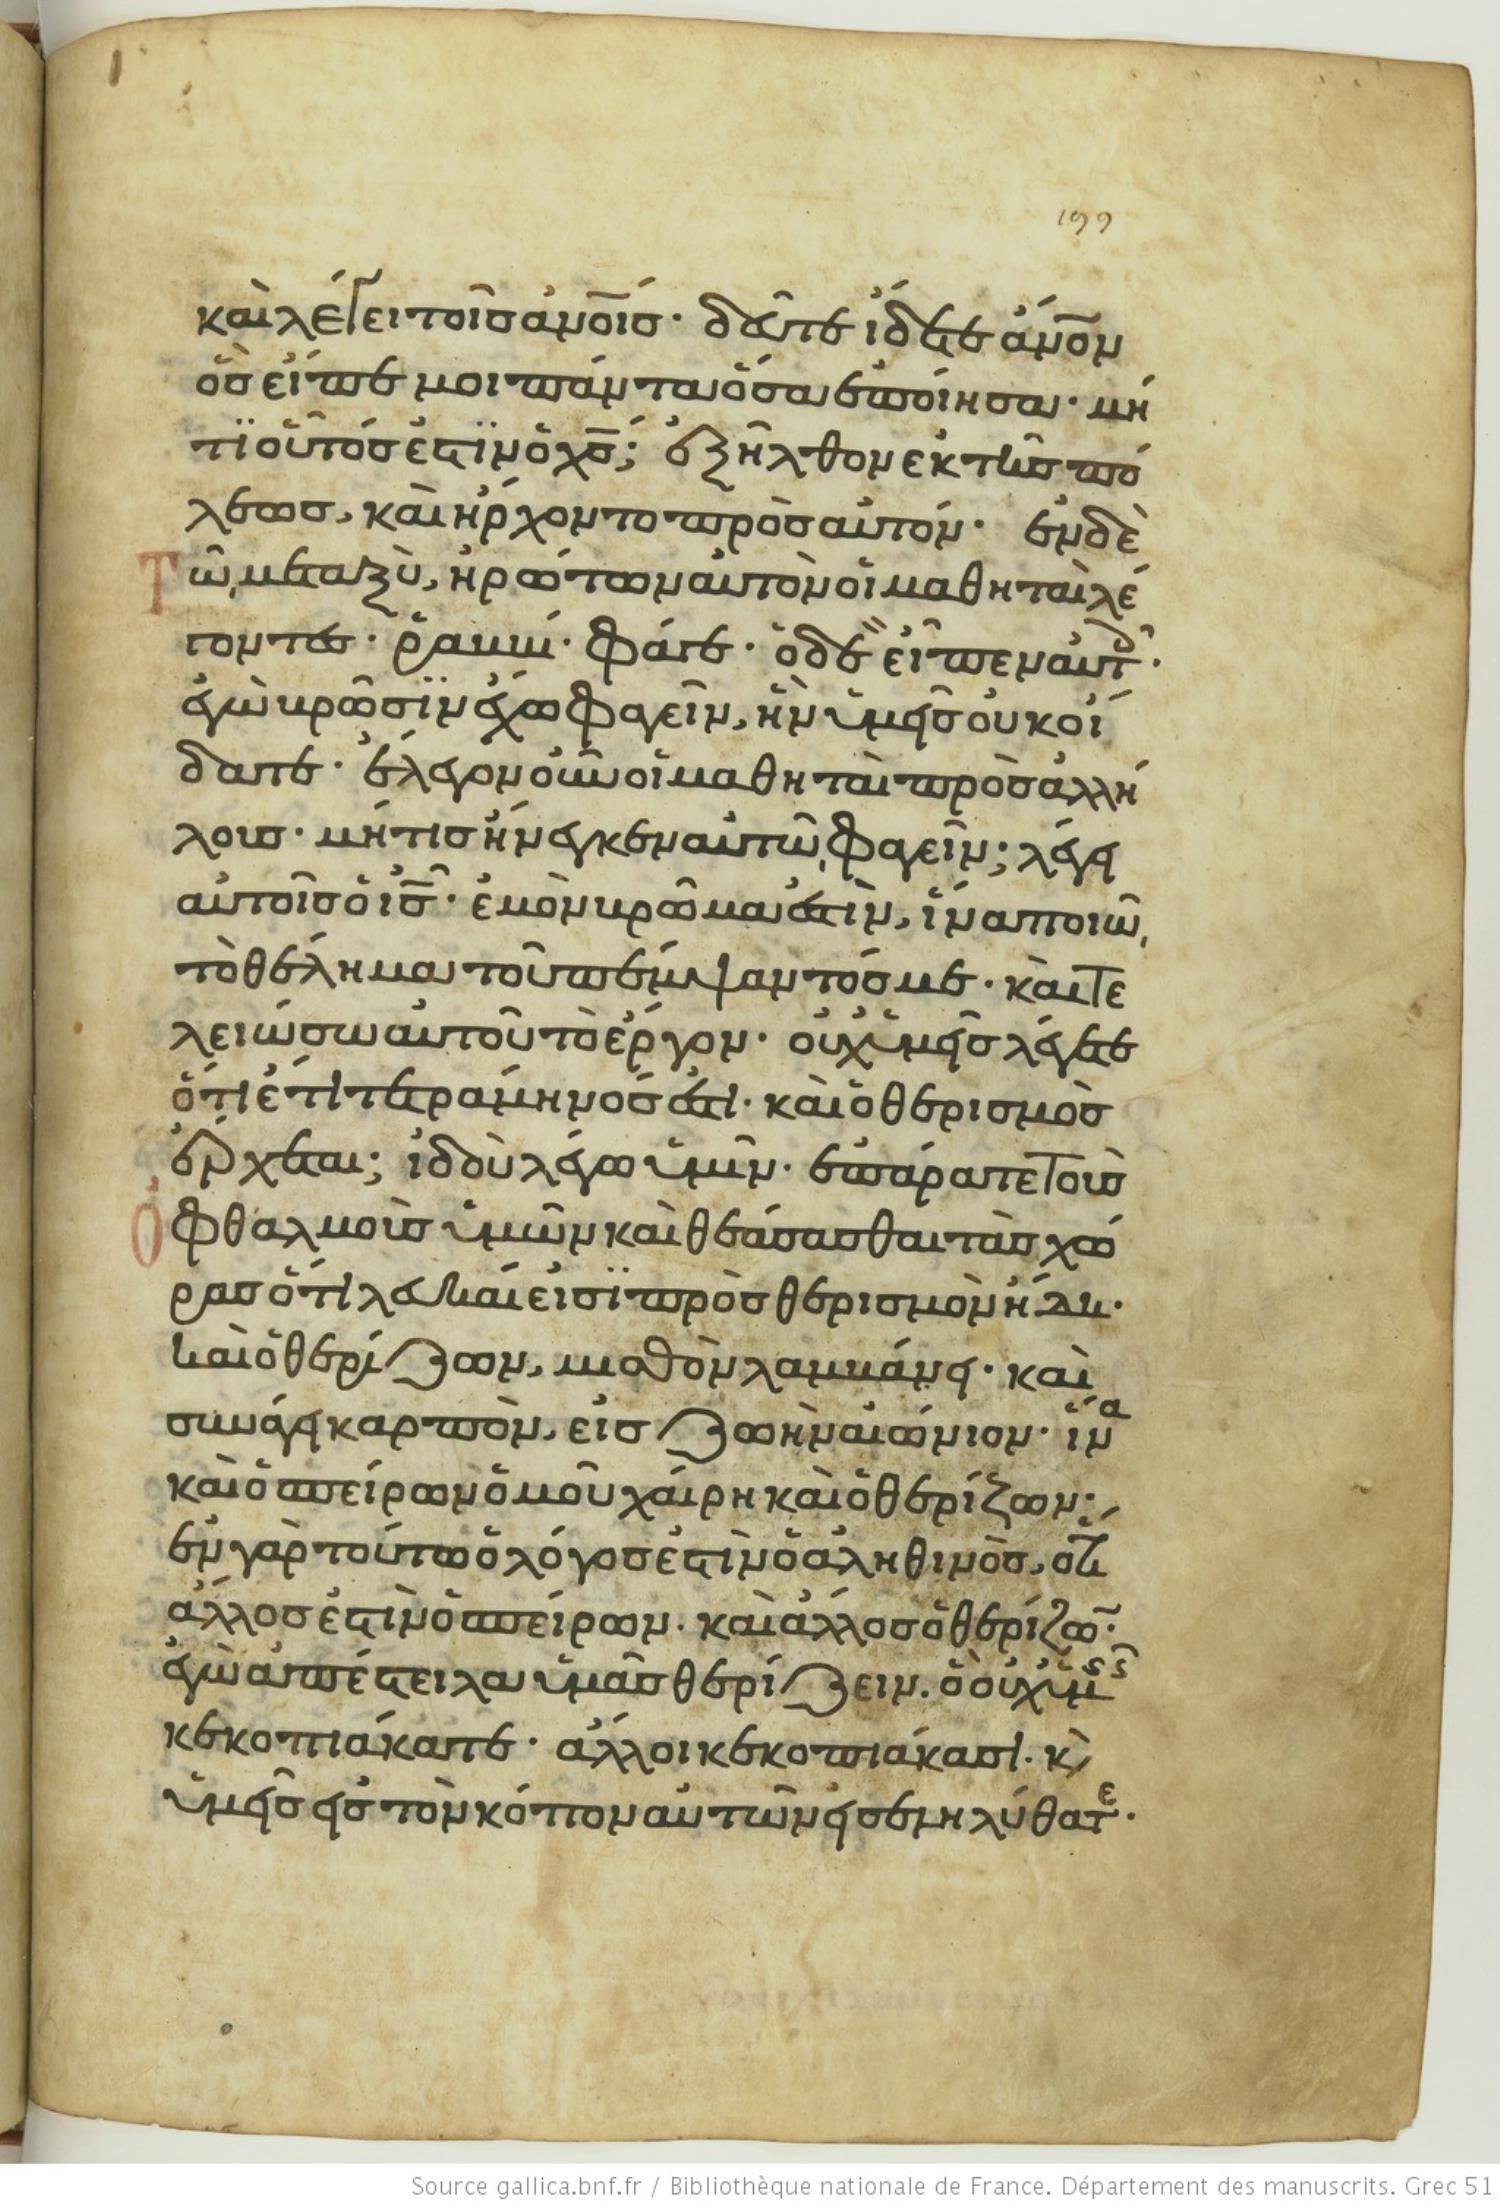 199
καὶ λέγει τοῖς ἀνοῖς· δεῦτε ἴδετε ἄνον
ὃς εἶπέ μοι πάντα ὅσα ἐποίησα· μή
τϊ οὗτός ἐστϊν ὁ χς; ἐξῆλθον ἐκ τῆς πό
λεως, καὶ ἤρχοντο πρὸς αὐτόν· ἐν δὲ
τῶ μεταξὺ, ἠρώτων αὐτὸν οἱ μαθηταὶ λέ
γοντες· ῥαββί· φάγε· ὁ δὲ εἶπεν αὐτοῖς·
ἐγὼ βρῶσϊν ἔχω φαγεῖν, ἣν ὑμεῖς οὐκ οἴ
δατε· ἔλεγον οὖν οἱ μαθηταὶ πρὸς ἀλλή
λους· μήτις ἤνεγκεν αὐτῶ φαγεῖν; λέγει
αὐτοῖς ὁ ις· ἐμὸν βρῶμα ἐστὶν, ἵνα ποιῶ
τὸ θέλημα τοῦ πέμψαντός με· καὶ τε
λειώσω αὐτοῦ τὸ ἔργον· οὐχ ὑμεῖς λέγετε
ὅτι ἔτι τετράμηνός ἐστι· καὶ ὁ θερισμὸς
ἔρχεται; ἰδοὺ λέγω ὑμῖν· ἐπάρατε τοὺς
ὀφθαλμοὺς ὑμῶν καὶ θεάσασθαι τὰς χώ
ρας ὅτι λευκαί εἰσϊ πρὸς θερισμὸν ἤδη·
καὶ ὁ θερίζων, μισθὸν λαμβάνει· καὶ
συνάγει καρπὸν, εἰς ζωὴν αἰώνιον· ἵνα
καὶ ὁ σπείρων ὁμοῦ χαίρη καὶ ὁ θερίζων·
ἐν γὰρ τούτω ὁ λόγος ἐστὶν ὁ ἀληθινὸς, ὅτι
ἄλλος ἐστὶν ὁ σπείρων· καὶ ἄλλος ὁ θερίζων·
ἐγὼ ἀπέστειλα ὑμᾶς θερίζειν· ὃ οὐχ ὑμεῖς
κεκοπιάκατε· ἄλλοι κεκοπιάκασι· κὶ
ὑμεῖς εἰς τὸν κόπον αὐτῶν εἰσεληλύθατε·
Source gallica.bnf.fr / Bibliothèque nationale de France. Département des manuscrits. Grec 51